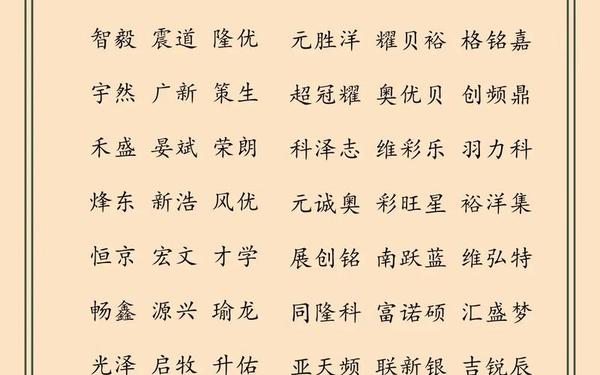 智毅 震道 隆优 元胜洋 耀贝裕 格铭嘉
宇然 广新 策生 超冠耀 奥优贝 创频鼎
禾盛 晏斌 荣朗 科泽志 维彩乐 羽力科
烽东 新浩 风优 元诚奥 彩旺星 裕洋集
恒京 宏文 才学 展创铭 南跃蓝 维弘特
畅鑫 源兴 瑜龙 同隆科 富诺硕 汇盛梦
光泽 启牧 升佑 亚天频 联新银 吉锐辰